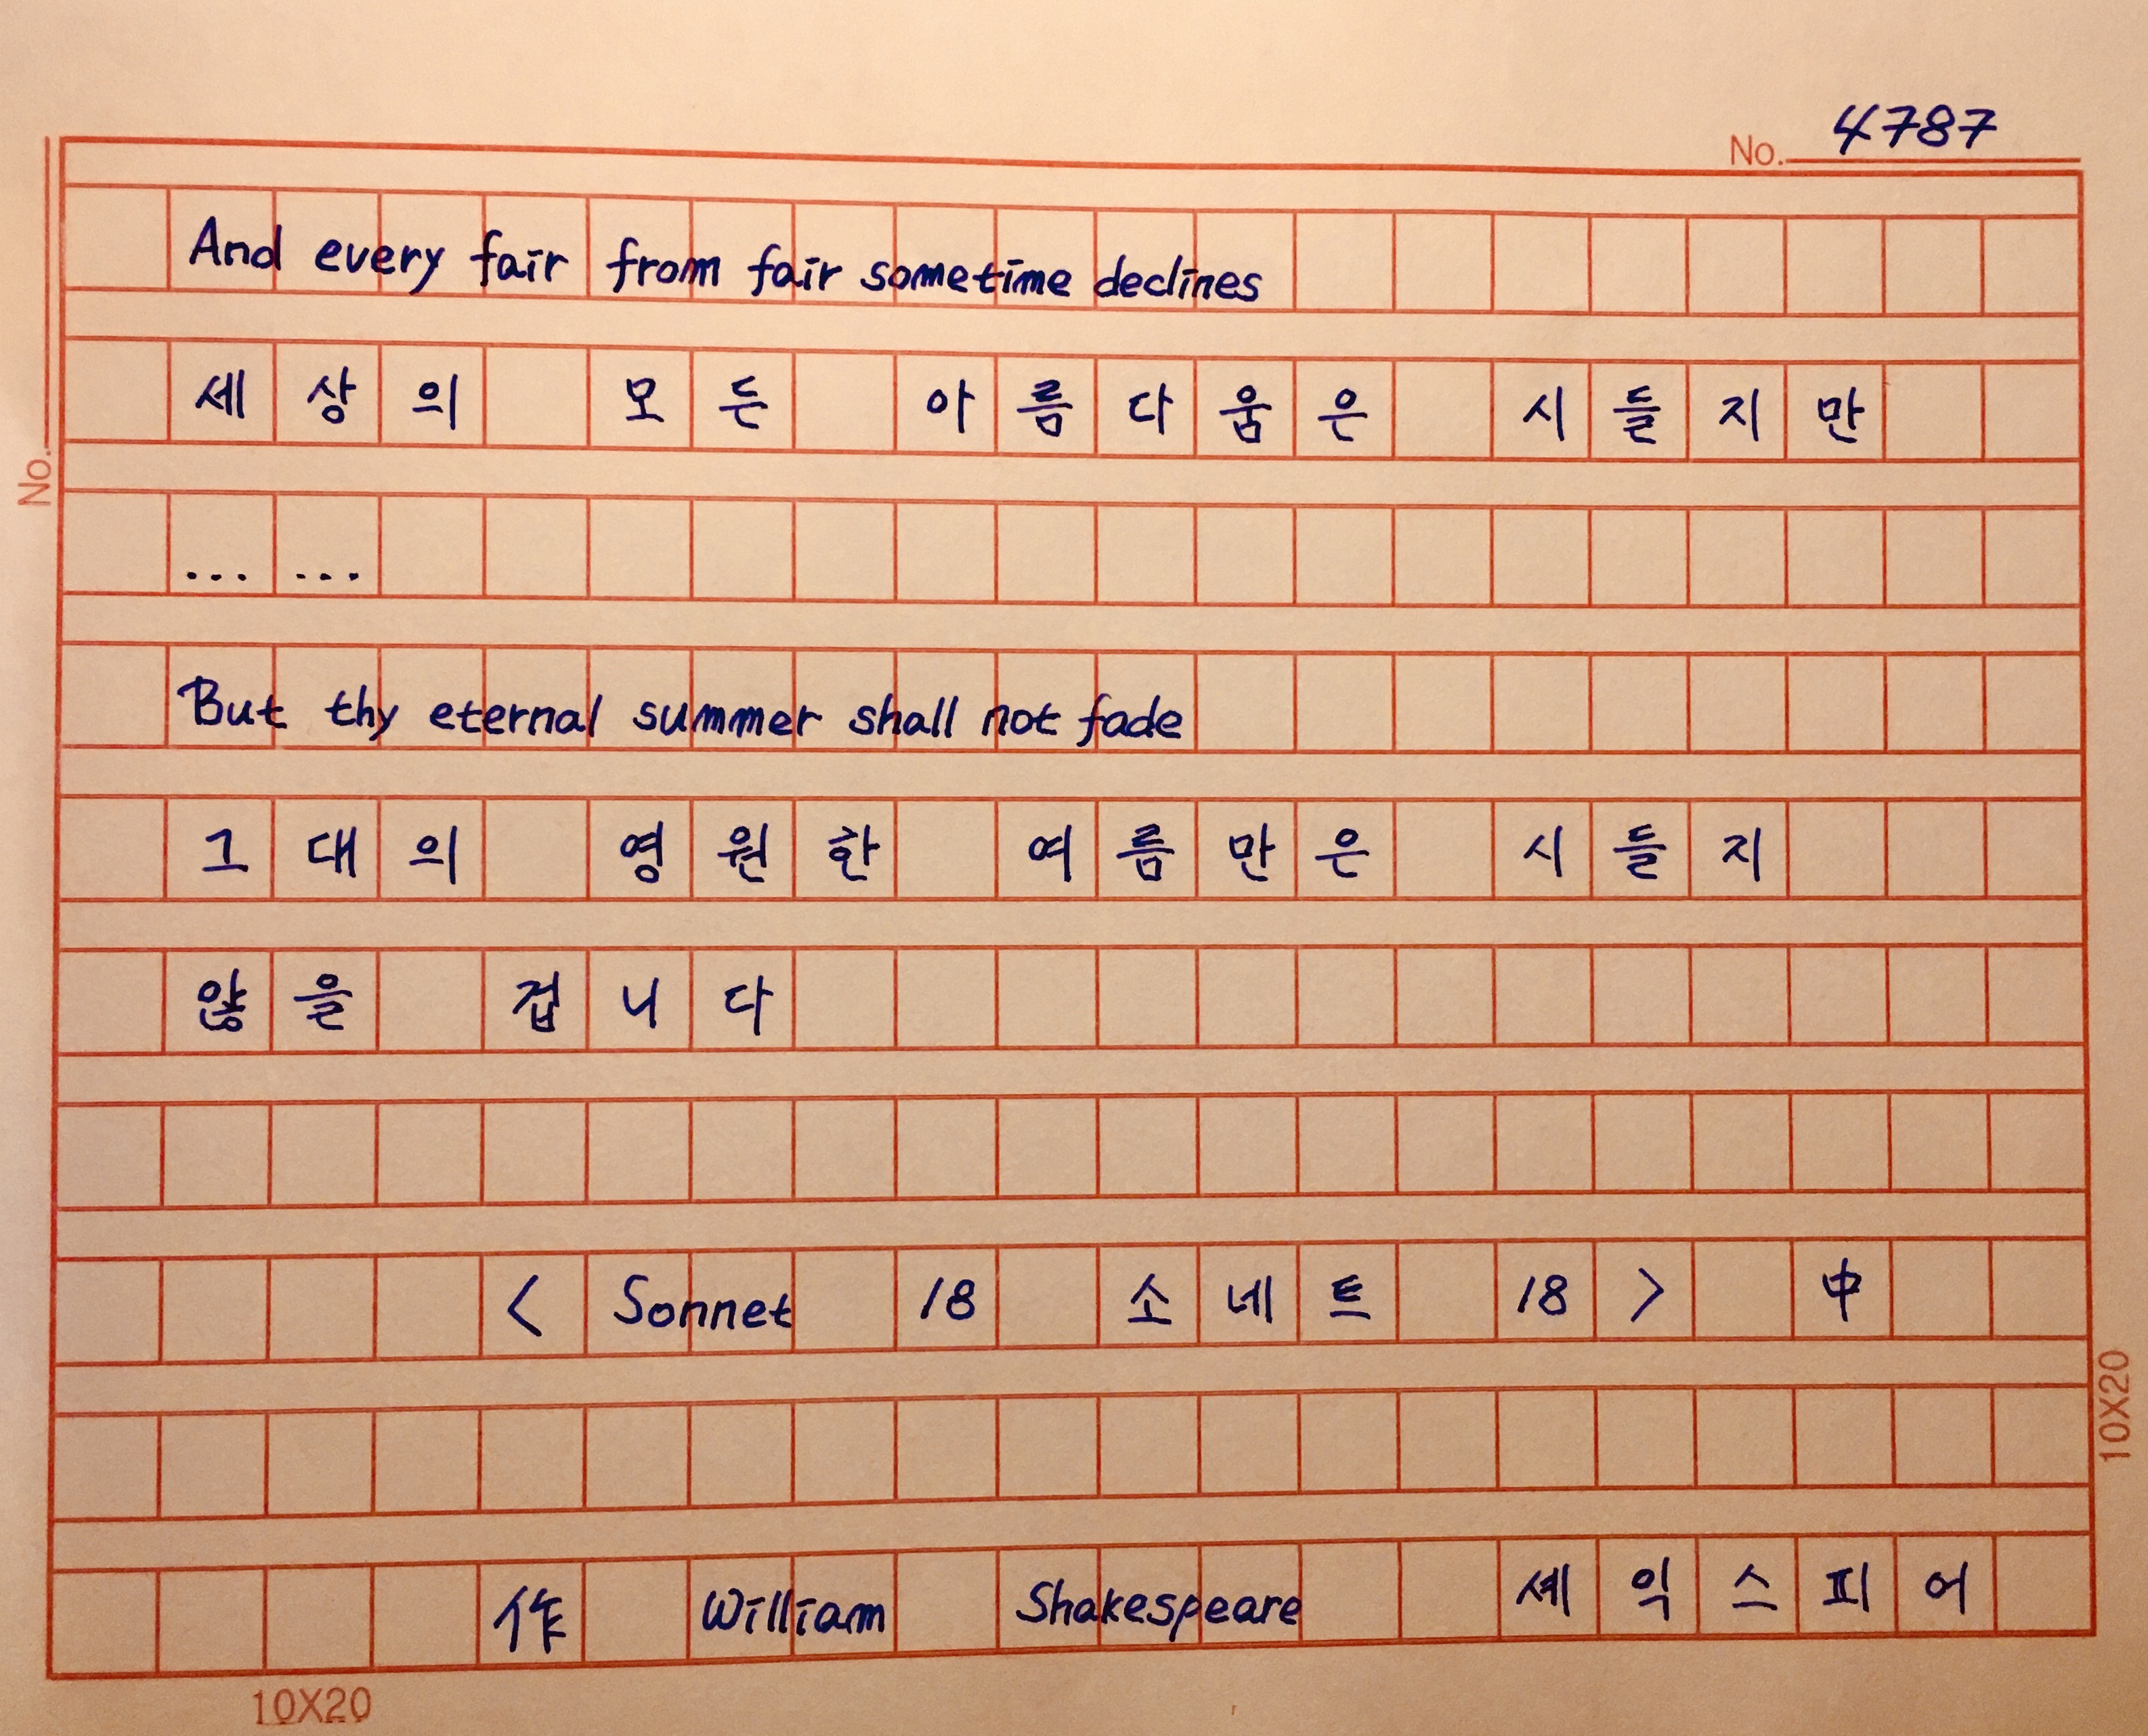 No. 4787
And every fair from fair sometime declines
세상의 모든 아름다움은 시들지만
... ...
But thy eternal summer shall not fade
그대의 영원한 여름만은 시들지
않을 겁니다
< Sonnet 18 소네트 18 > 中
作 William Shakespeare 셰익스피어
No.
10X20
10X20